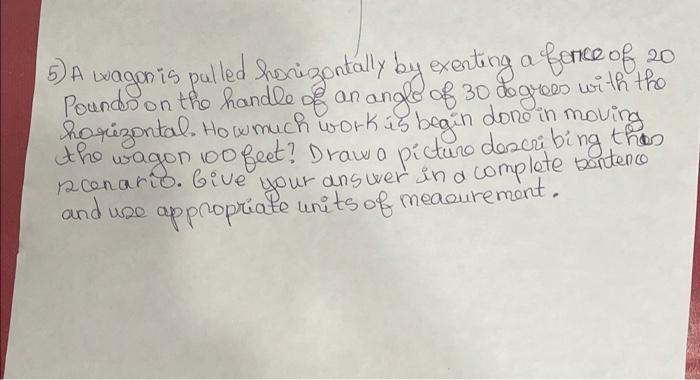 5) A wagon is pulled horizontally by exerting a force of 20
Pounds on the handle of an angle of 30 degrees with the
horizontal. How much work is begin done in moving
the wagon 100 feet? Draw a picture describing this
scenario. Give your answer in a complete sentence
and use appropriate units of measurement.